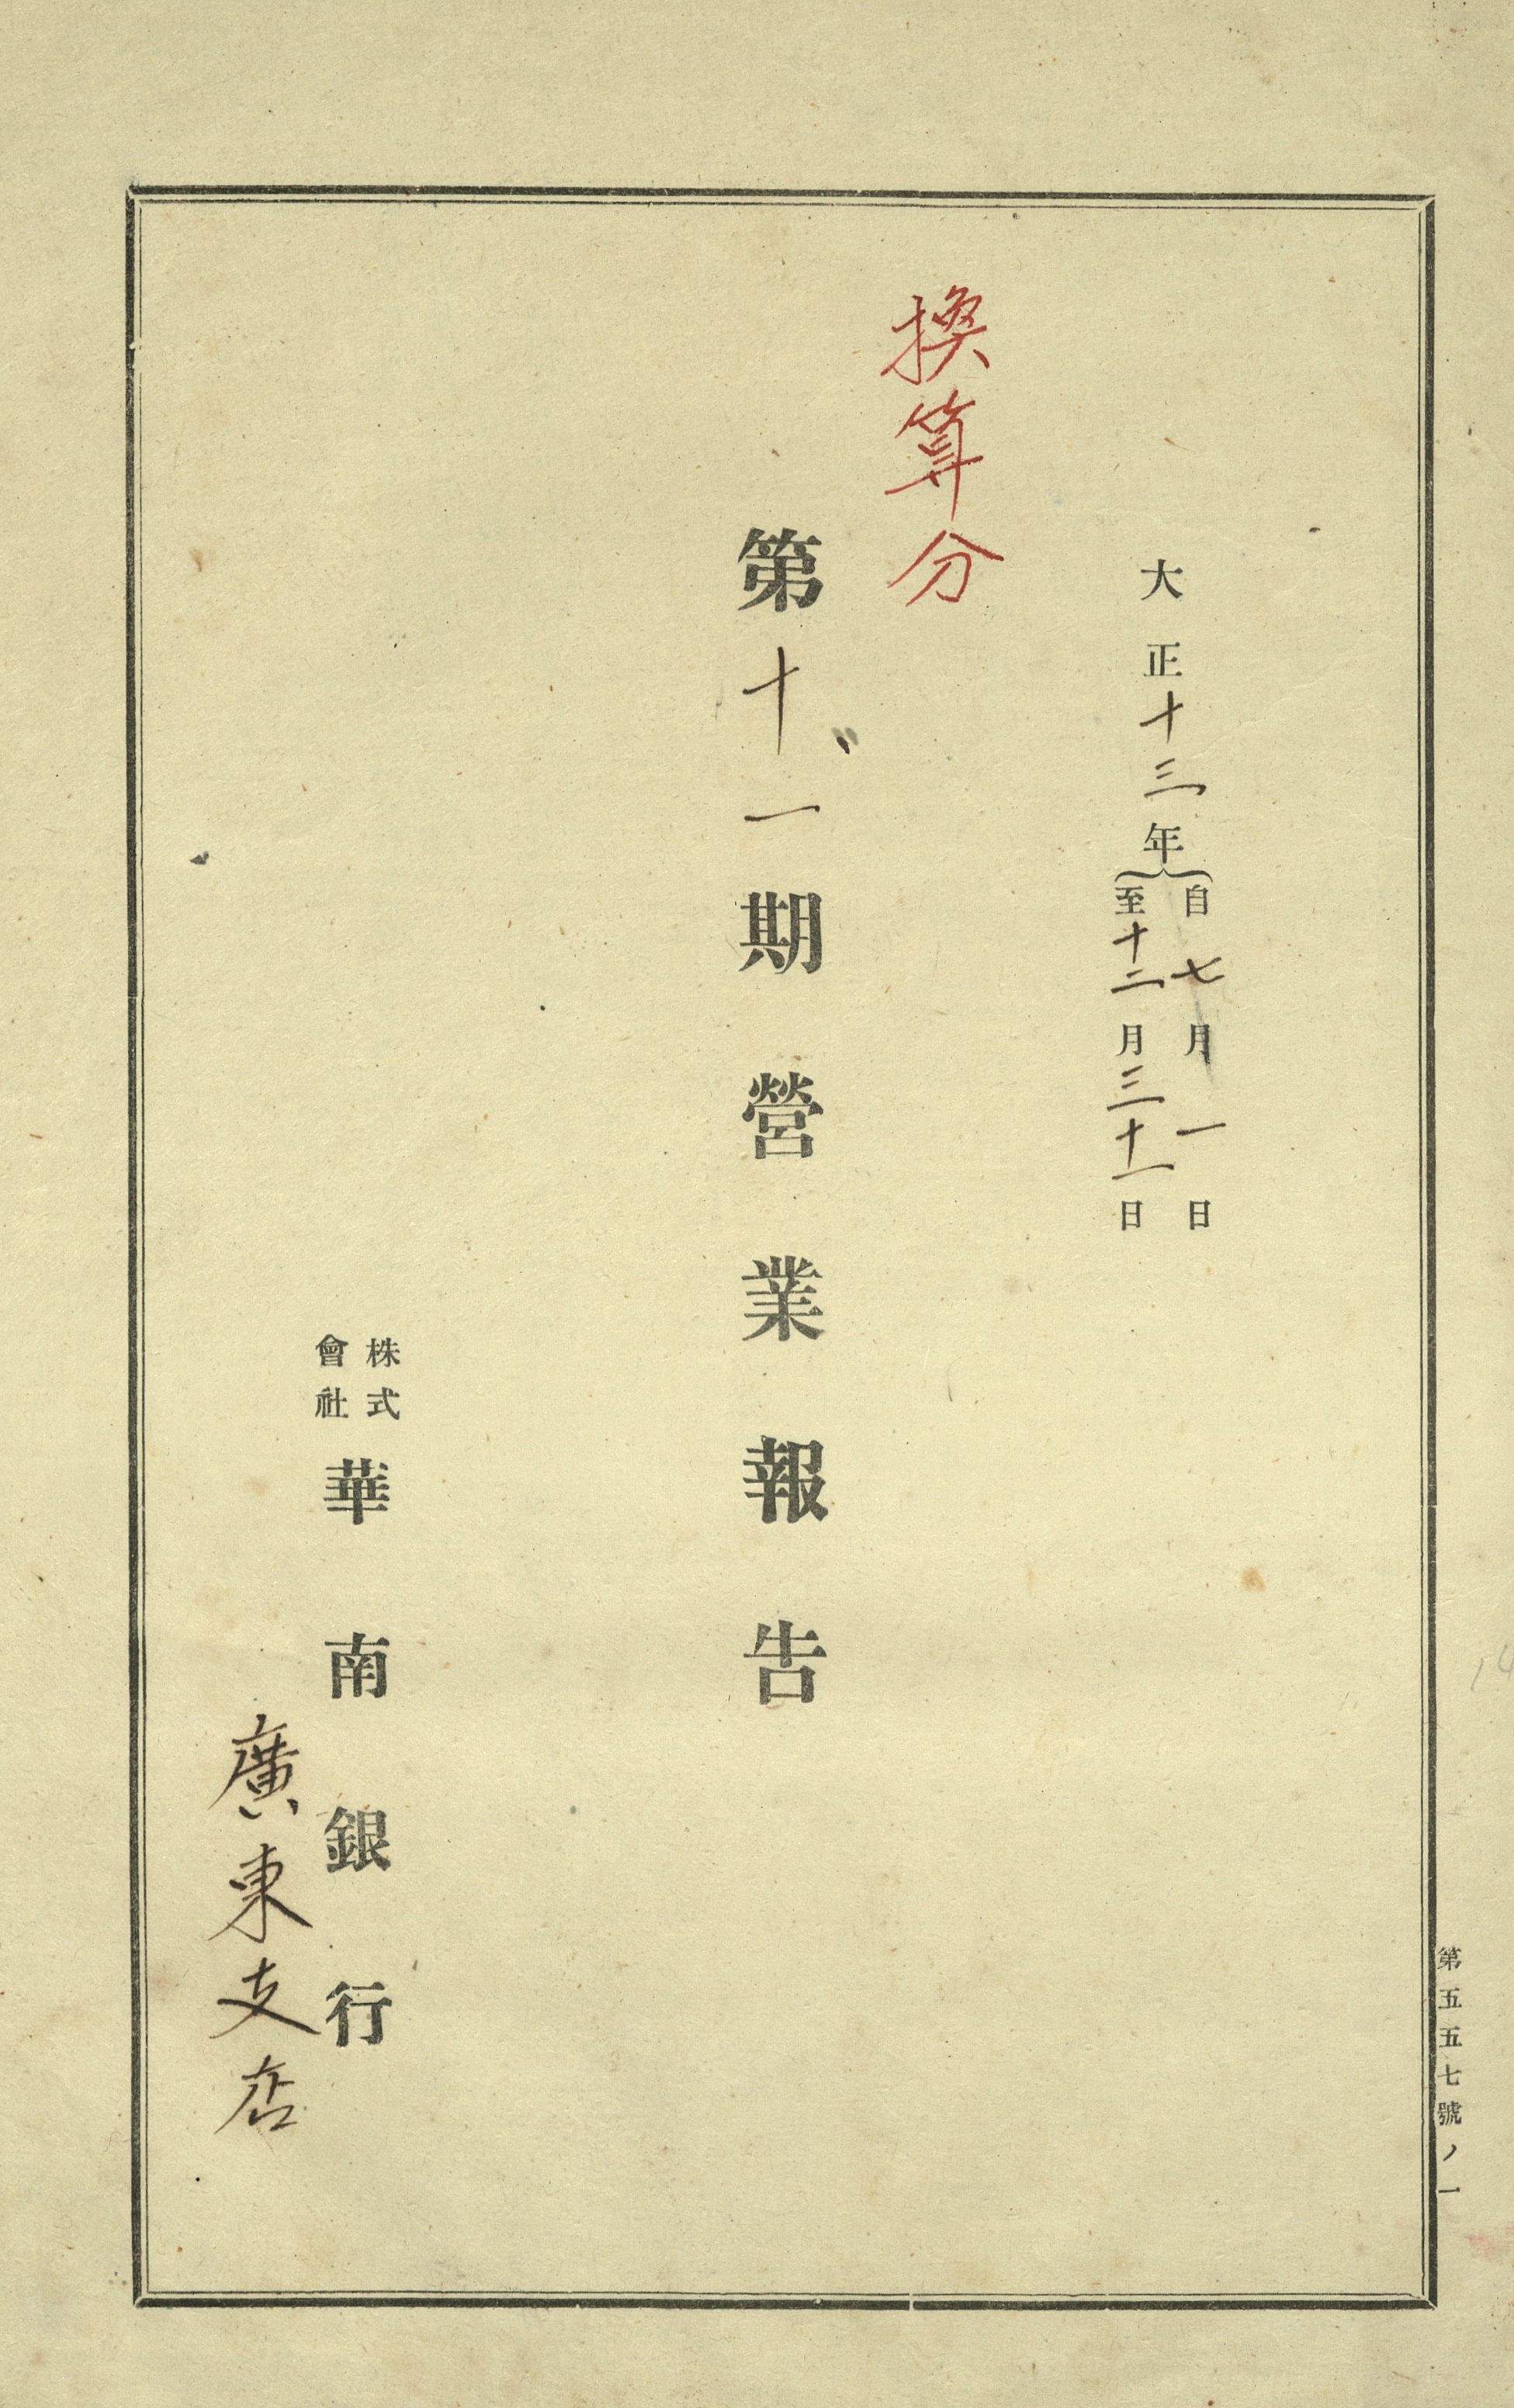 大正十三年
自七月一日
至十二月三十一日
換算分
第十一期營業報告
株式
會社
華南銀行
廣東支店
第五五七號ノ一